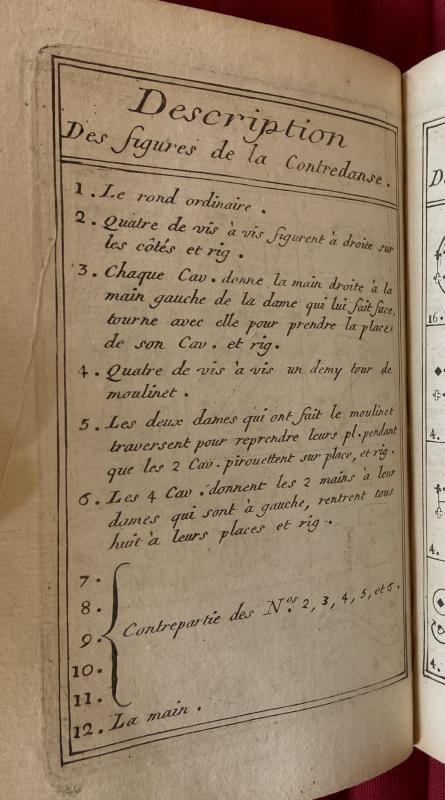 Description
Des figures de la Contredanse.
1. Le rond ordinaire.
2. Quatre de vis à vis figurent à droite sur
les côtés et rig.
3. Chaque Cav. donne la main droite à la
main gauche de la dame qui lui fait face,
tourne avec elle pour prendre la place
de son Cav. et rig.
4. Quatre de vis à vis un demy tour de
moulinet.
5. Les deux dames qui ont fait le moulinet
traversent pour reprendre leurs pl. pendant
que les 2 Cav. pirouettent sur place, et rig.
6. Les 4 Cav. donnent les 2 mains à leur
dames qui sont à gauche, rentrent tous
huit à leurs places et rig.
7.
8.
9. Contrepartie des Nos. 2, 3, 4, 5, et 6.
10.
11.
12. La main.
D
16.
4.
4.
4.